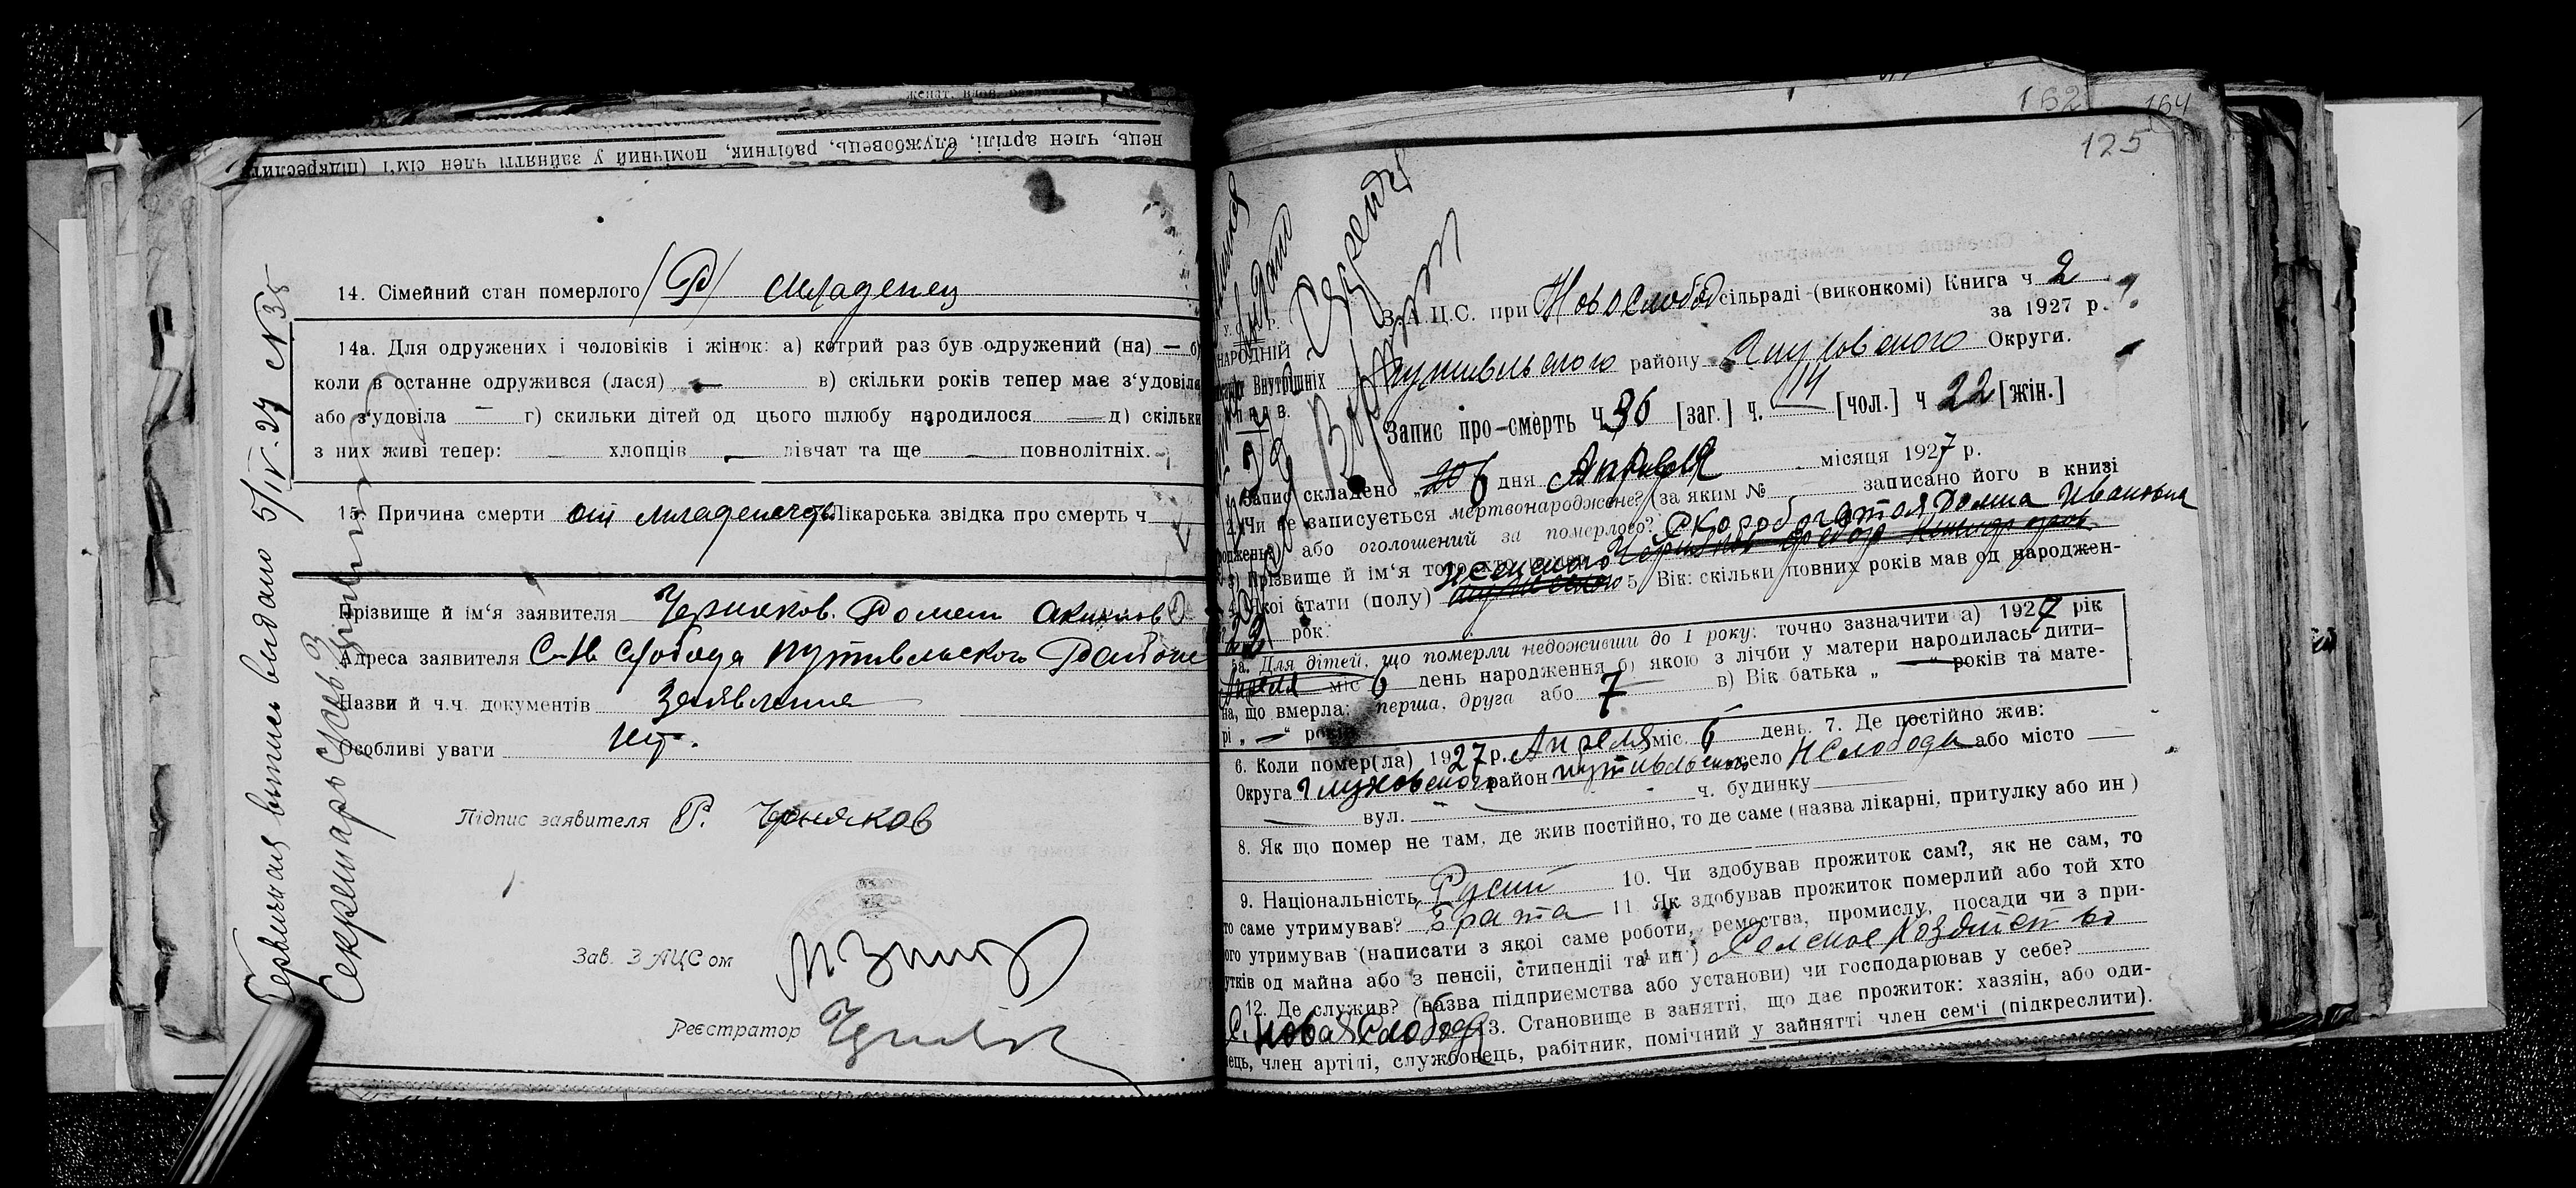 нець, член артілі, службовець, робітник, помічний у зайнятті член сім'ї (підкреслити
14. Сімейний стан померлого /Р/ младенец
14а. Для одружених і чоловіків і жінок: а) котрий раз був одружений (на) — б)
коли в останне одружився (лася) — в) скільки років тепер має з'удовіла
або з'удовіла — г) скильки дітей од цього шлюбу народилося — д) скільки
з них живі тепер: — хлопців — дівчат та ще — повнолітніх.
15. Причина смерти от младенчества Лікарська звідка про смерть ч
Прізвище й ім'я заявителя Черняков Роман
Адреса заявителя С-Н Слобода Путивльского Района
Назви й ч.ч. документів Заявление
Особливі уваги нет.
Підпис заявителя Р. Черняков
Зав. ЗАЦСом
Реєстратор
Первичная выпись выдано 5/IV-27 №35
Секретарь
162
164
125
З.А.Ц.С. при Новослобод сільраді (виконкомі) Книга ч 2
за 1927 р.
Путивльского району Глуховского Округи.
НАРОДНІЙ
Внутрішніх
Запис про смерть ч 36 [заг.] ч. 14 [чол.] ч 22 [жін.]
1. Запис складено 6 дня Апреля місяця 1927 р.
2. Чи не записується мертвонароджене? (за яким № записано його в книзі
або оголошений за померлого? Скоробогатая Домна Ивановна
3) Прізвище й ім'я того, хто помер
4. Якої стати (полу) женского 5. Вік: скільки повних років мав од народжен-
23 рок.
5а. Для дітей, що померли недоживши до 1 року: точно зазначити а) 1927 рік
Апреля міс 6 день народження б) якою з лічби у матери народилась дити-
на, що вмерла: перша, друга або 7 в) Вік батька „ — “ років та мате-
рі „ — “ років
6. Коли помер(ла) 1927 р. Апреля міс. 6 день. 7. Де постійно жив:
Округа Глуховского район Путивльского село Н Слобода або місто —
вул. — ч. будинку
8. Як що помер не там, де жив постійно, то де саме (назва лікарні, притулку або ин)
9. Національність Руский 10. Чи здобував прожиток сам?, як не сам, то
хто саме утримував? Брата 11. Як здобував прожиток померлий або той хто
його утримував (написати з якої саме роботи, ремества, промислу, посади чи з при-
бутків од майна або з пенсії, стипендії та ин) Селское Хозяйство
12. Де служив? (назва підприємства або установи) чи господарював у себе?
С. Новая Слобода 13. Становище в занятті, що дає прожиток: хазяін, або оди-
нець, член артілі, службовець, рабітник, помічний у зайнятті член сем'ї (підкреслити).